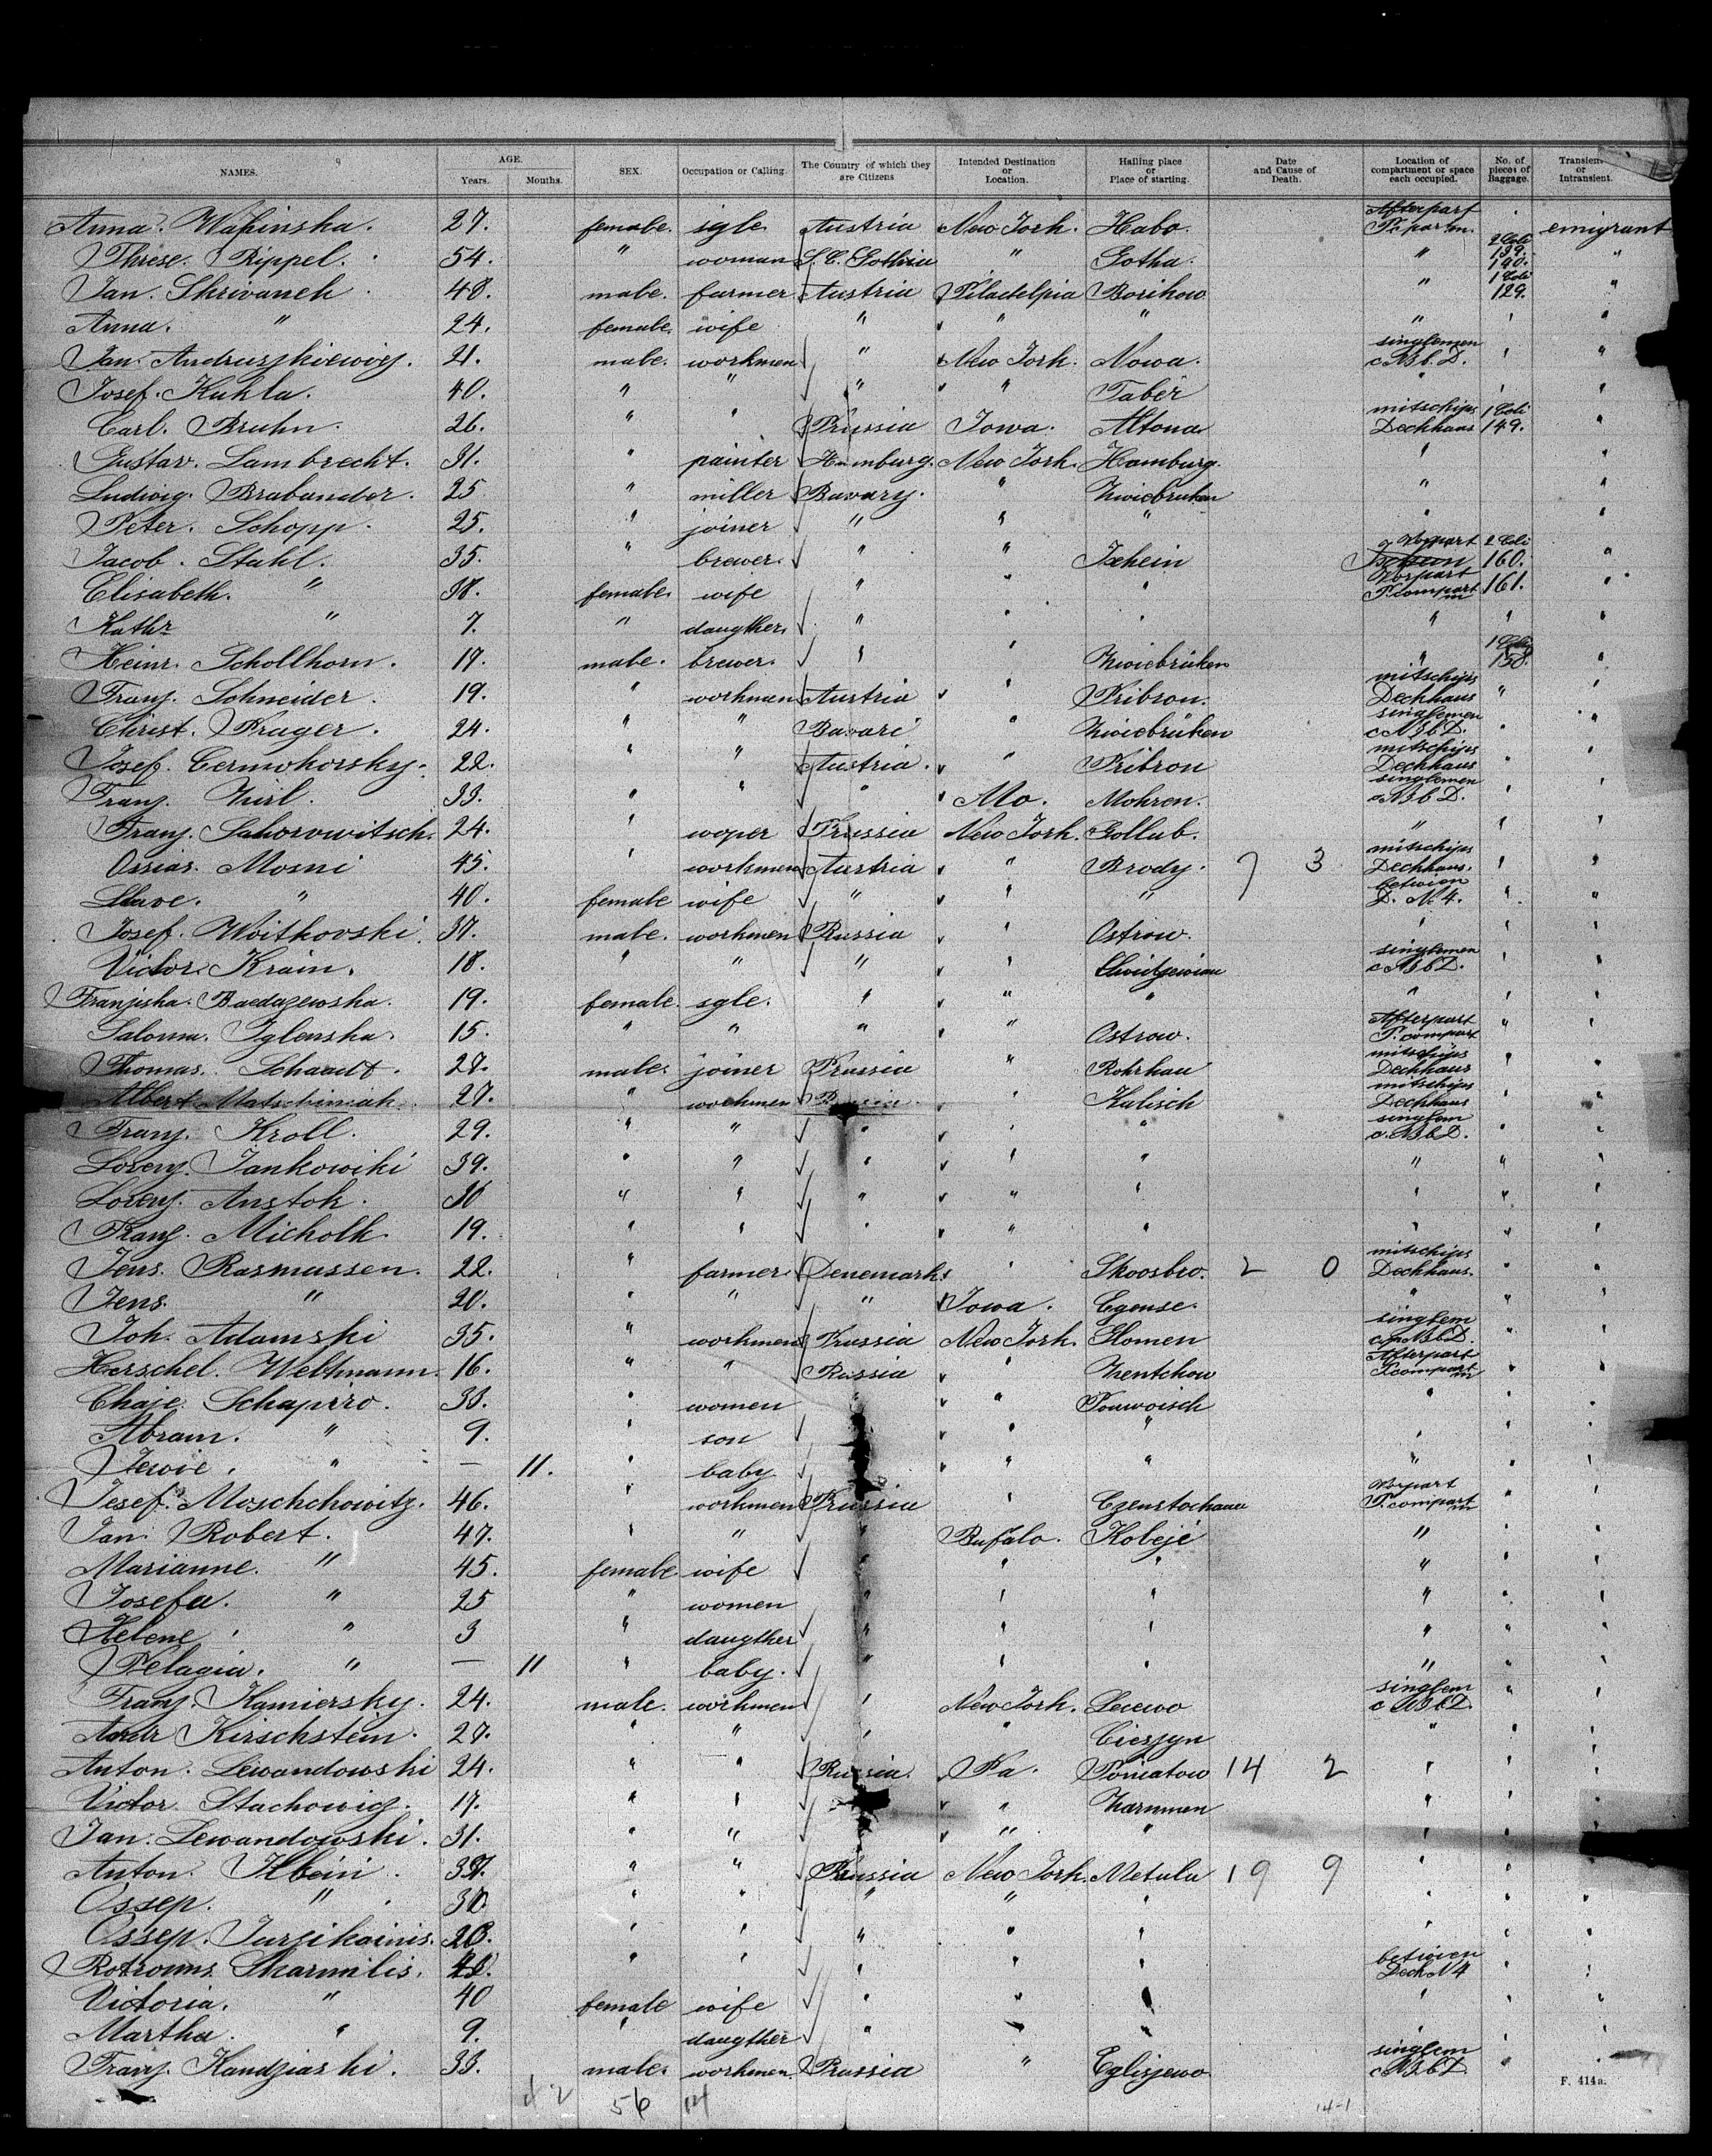 NAMES. AGE. Years. Months. SEX. Occupation or Calling. The Country of which they are Citizens Intended Destination or Location. Hailing place or Place of starting. Date and Cause of Death. Location of compartment or space each occupied. No. of pieces of Baggage. Transient or Intransient.
Anna. 27. female. sgle Austria New York. Habo. Afterpart emigrant
Threse. Rippel. 54. " woman S.C. Gothia " Gotha. " 2 Coli 139. 140. "
Jan. Skrivanek. 48. male. farmer Austria Piladelpia Borikow " 1 Coli 129. "
Anna. " 24. female. wife " " " " " "
Jan. 21. male. workmen " New York. Nowa. singlemen c N3 b. D. " "
Josef. Kukla. 40. " " " " Taber " " "
Carl. Bruhn. 26. " " Prussia Iowa. Altona mitschips Deckhaus 1 Coli 149. "
Gustav. Lambrecht. 31. " painter Hamburg. New York. Hamburg. " "
Ludwig. Brabander. 25 " miller Bavary. " Zwiebruken " "
Peter. Schopp. 25. " joiner " " " " "
Jacob. Stahl. 35. " brewer. " " Ixhein Vorpart 2 Coli 160. "
Elisabeth. " 38. female. wife " " " Vorpart P. compart m 161. "
Kathr " 7. " daugther. " " " " " "
Heinr. Schollhorn. 17. male. brewer. " " Zwiebrüken " 1 Coli 158. "
Franz. Schneider. 19. " workmen Austria " Pribron. mitschips Deckhaus " "
Christ. Krager. 24. " " Bavari " Zwiebrüken singlemen c N3 b D. " "
Josef. Cernohorsky. 22. " " Austria. " Pribron mitschips Deckhaus " "
Franz. 33. " " " Mo. Mohren. singlemen c N3 b D. " "
Franz. Sahorowitsch. 24. " woper Prussia New York. Gollub. " " "
Ossias. Mosni 45. " workmen Austria " Brody. 7 3 mitschips Deckhaus. " "
" 40. female wife " " " betwien D. N. 4. " "
Josef. Woitkovski. 37. male. workmen Russia " Ostrow. " " "
Victor. Krain. 18. " " " " singlemen c N3 b D. " "
Franziska. 19. female. sgle. " " " " " "
Saloma. Iglenska. 15. " " " " Ostrow. Afterpart P. compart " "
Thomas. Schaudt. 27. male. joiner Prussia " Rohrhau mitschips Deckhaus " "
Albert Matschiniak. 27. " workmen " Kalisch mitschips Deckhaus " "
Franz. Kroll. 29. " " " " " singlem c. N3 b D. " "
Lorenz. Jankowiki 39. " " " " " " " "
Lorenz. Anstok. 30 " " " " " " " "
Franz. Micholk. 19. " " " " " " " "
Jens. Rasmussen. 22. " farmer. Denemark. " Skoosbro. 2 0 mitschips Deckhaus. " "
Jens. " 20. " " " Iowa. Egense. " " "
Joh. Adamski 35. " workmen Prussia New York. Slomen singlem " "
Herschel. Weltmann. 16. " " Russia " Zentchow Afterpart P. compart m " "
Chaje. Schapiro. 33. " women " " " " "
Abram. " 9. " son " " " " "
" — 11. " baby " " " " "
Josef. Moschkowitz. 46. " workmen Prussia " Czenstochaau Vorpart P. compart m " "
Jan. Robert. 47. " " " Bufalo. Kobeje " " "
Marianne. " 45. female. wife " " " " " "
Josefa. " 25 " women " " " " " "
Helene. " 3 " daugther " " " " " "
Pelagia. " — 11 " baby. " " " " " "
Franz. Kamiersky. 24. male. workmen " New York. singlem c N3 b D. " "
Andr Kirschstein. 27. " " " " Cieszyn " " "
Anton. Lewandowski 24. " " Russia. Pa. Poniatow 14 2 " " "
Victor. 17. " " " Zarnmen " " "
Jan. Lewandowski. 31. " " " " " " "
Anton. " " Russia New York. Metulu 19 9 " " "
Ossep. " 30 " " " " " " " "
Ossep. " " " " " " " "
Skarmilis. " " " " " betwien Deck N 4 " "
Victoria. " 40 female wife " " " " " "
Martha. " 9. " daugther " " " " " "
Franz. Kandziaski. 33. male. workmen. Prussia " Eglizjewo singlem c N3 b D. " "
F. 414a.
56 14 14-1